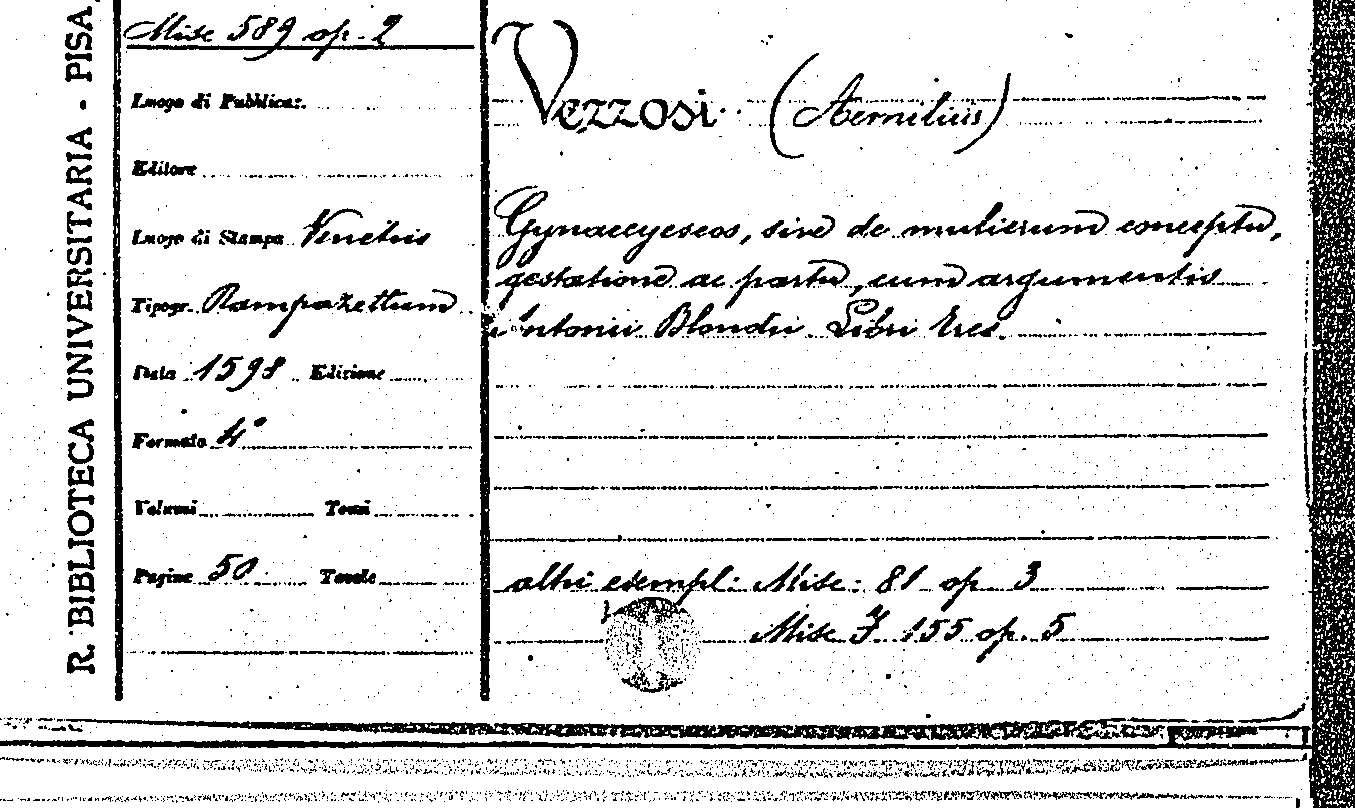 R. BIBLIOTECA UNIVERSITARIA - PISA
Misc 589 op. 2
Luogo di Pubblicaz.
Editore
Luogo di Stampa Venetiis
Tipogr. Rampazettum
Data 1598 Edizione
Formato 4°
Volumi Tomi
Pagine 50. Tavole
Vezzosi (Aemilius)
Gynaecyeseos, sive de mulierum conceptu,
gestatione ac partu, cum argumentis
Antonii Blondii Libri tres.
altri esempl: Misc: 81 op 3
Misc 155 op. 5